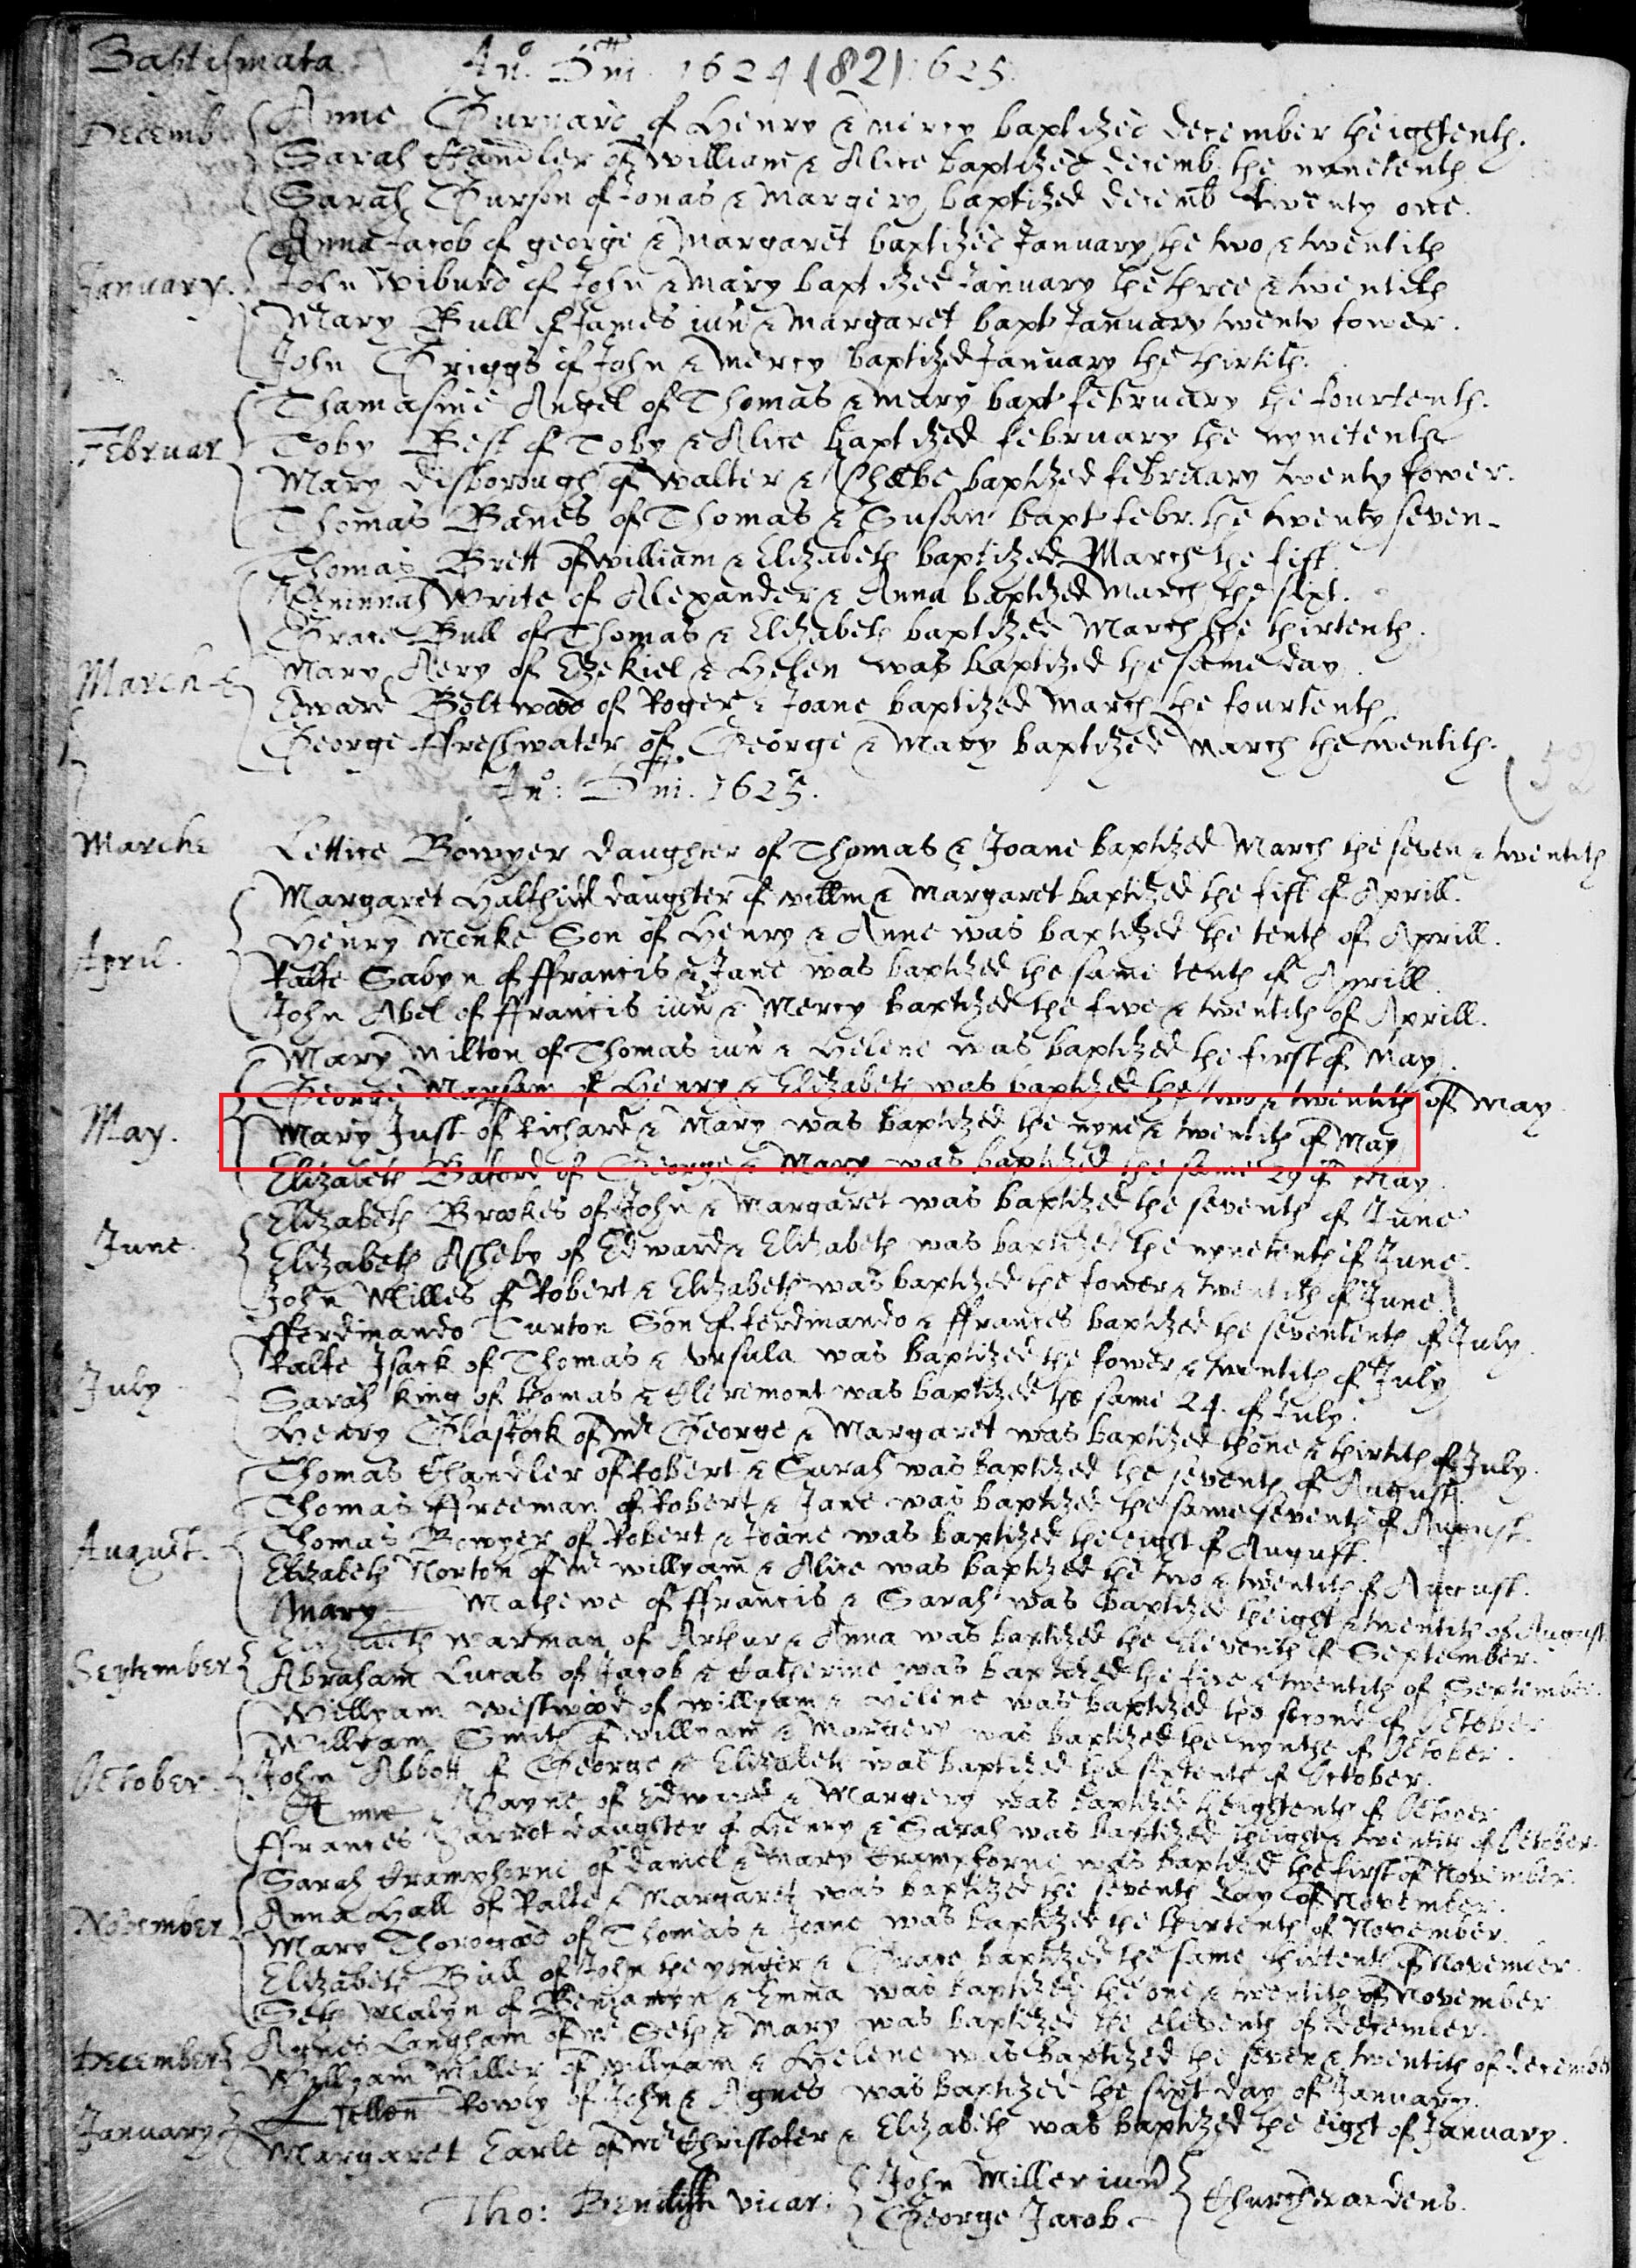 Baptismata. Ano. Dni. 1624 (82) 1625.
Decemb Anne of Henry & mercy baptized december theightenth.
Sarah Chandler of william & Alice baptized decemb. the nynetenth
Sarah Curson of Jonas & Margery baptized decemb twenty one.
Anna Jacob of george & margaret baptized January the two & twentith
January. John Wiburd of John & Mary baptized January the three & twentith
Mary Bull of James iun & Margaret bapt January twenty fower.
John Griggs of John & Mercy baptized January the thirtith.
Thamasine Angel of Thomas & Mary bapt february the fourtenth.
Februar Toby Best of Toby & Alice baptized february the nynetenth
Mary Disborough of walter & Phœbe baptized february twenty fower.
Thomas Banes of Thomas & Susan bapt febr. the twenty seven.
Thomas Brett of william & Elizabeth baptized March the fift.
Peninnah Write of Alexander & Anna baptized March the sixt.
Grace Bull of Thomas & Elizabeth baptized March the thirtenth.
March Mary Aery of Ezekiel & Helen was baptized the same day.
Edward Boltwood of Roger & Joane baptized March the fourtenth
George ffreshwater of George & Mary baptized March the twentith.
Ano: Dni. 1625.
Marche Lettice Bowyer daughter of Thomas & Joane baptized March the seven & twentith
Margaret daughter of willm & Margaret baptized the fift of Aprill.
Henry Monke Son of Henry & Anne was baptized the tenth of Aprill.
April. Ralfe Sabyn of ffrancis & Jane was baptized the same tenth of Aprill.
John Abel of ffrancis iun & Mercy baptized the five & twentith of Aprill.
Mary Milton of Thomas iun & Helene was baptized the first of May.
George of Henry & Elizabeth was baptized the two & twentith of May
May. Mary Just of Richard & Mary was baptized the nyne & twentith of May
Elizabeth of George & Mary was baptized the same 29 of May
Elizabeth Brookes of John & Margaret was baptized the seventh of June
June. Elizabeth Asheby of Edward & Elizabeth was baptized the nynetenth of June.
John Milles of Robert & Elizabeth was baptized the fower & twentith of June.
fferdinando Turton Son of ferdinando & ffrances baptized the sevententh of July.
Ralfe Isack of Thomas & Ursula was baptized the fower & twentith of July
July Sarah King of Thomas & was baptized the same 24. of July.
Henry Glascock of Mr George & Margaret was baptized thone & thirtith of July.
Thomas Chandler of Robert & Sarah was baptized the seventh of August.
Thomas ffreeman of Robert & Jane was baptized the same seventh of August.
August. Thomas Bowyer of Robert & Joane was baptized the eight of August.
Elizabeth Norton of Mr willyam & Alice was baptized the two & twentith of August.
Mary Mathewe of ffrancis & Sarah was baptized theight & twentith of August
Elizabeth warman of Arthur & Anna was baptized the eleventh of September.
September Abraham Lucas of Jacob & Catherine was baptized the five & twentith of September.
Willyam westwood of willyam & Helene was baptized the second of October
Willyam Smith of willyam & Margery was baptized the nynthe of October.
October. John Abbott of George & Elizabeth was baptized the sixtenth of October.
Anne Payne of Edward & Margery was baptized theightenth of October
ffrances daughter of Henry & Sarah was baptized theight & twentith of October.
Sarah Cramphorne of Daniel & Mary Cramphorne was baptized the first of November.
Anna Hall of Ralfe & Margaret was baptized the seventh day of November.
November Mary Thorogood of Thomas & Joane was baptized the thirtenth of November.
Elizabeth Bull of John the yonger & Grace baptized the same thirtenth of November.
Seth Malyn of Benjamyn & Emma was baptized the one & twentith of November
Agnes Langham of Mr Seth & Mary was baptized the eleventh of December.
December Willyam Miller of willyam & Helene was baptized the seven & twentith of december
Rowly of John & Agnes was baptized the sixt day of January.
January Margaret Earle of Mr Christofer & Elizabeth was baptized the eight of January.
Tho: vicar. John Miller iun
George Jacob Churchwardens.